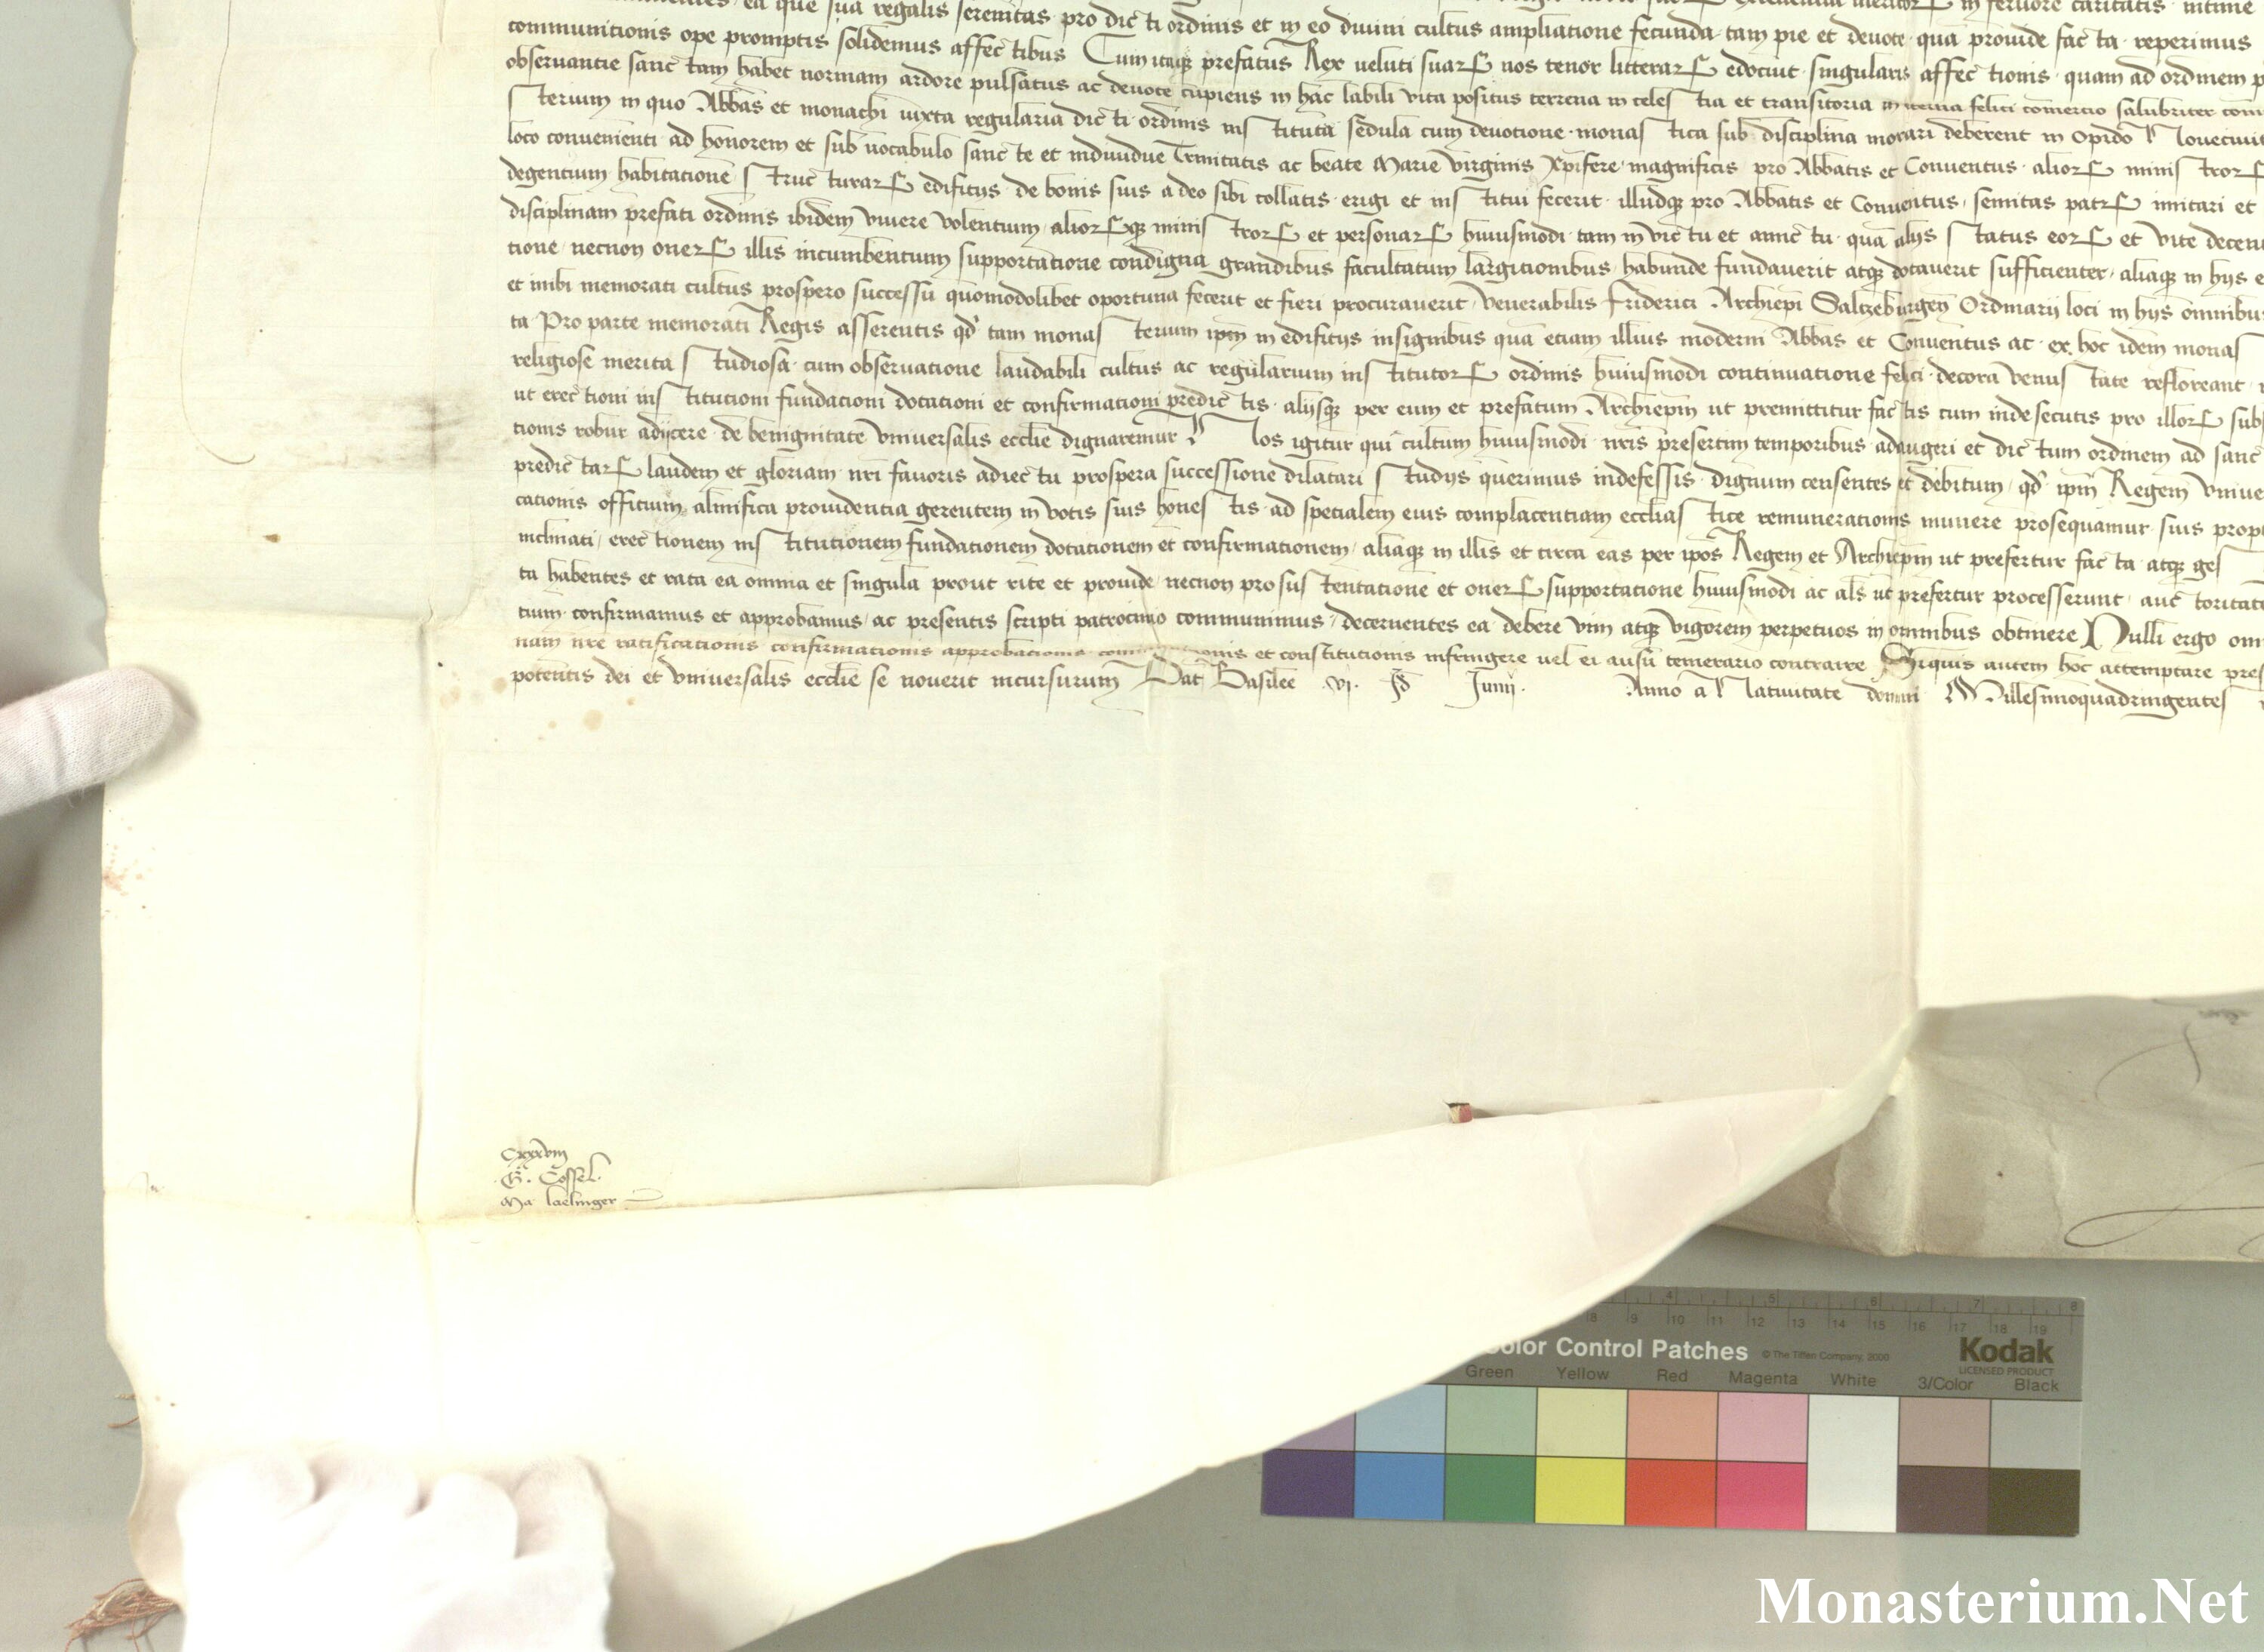 ea que sua regalis serenitas pro dicti ordinis et in eo diuini cultus ampliatione fecunda tam pie et deuote qua prouide facta reperimus
communitionis ope promptis solidemus affectibus Cum itaqꝫ prefatus Rex ueluti suarꝝ nos tenor litterarꝝ edocuit singularis affectionis quam ad ordinem
obseruantie sanctam habet normam ardore pulsatus ac deuote cupiens in hac labili vita positus terrena in celestia et transitoria in eterna felici comercio salubriter com
sterium in quo Abbas et monachi iuxta regularia dicti ordinis instituta sedula cum deuotione monastica sub disciplina morari deberent in Opido Nouecivit
loco conuenienti ad honorem et sub uocabulo sancte et indiuidue Trinitatis ac beate Marie virginis Xpifere magnificis pro Abbatis et Conuentus aliorꝝ ministrorꝝ
degentium habitatione structurarꝝ edificijs de bonis suis a deo sibi collatis erigi et institui fecerit illudqꝫ pro Abbatis et Conuentus semitas patrꝝ imitari et
disciplinam prefati ordinis ibidem viuere volentium aliorꝝqꝫ ministrorꝝ et personarꝝ huiusmodi tam in victu et amictu qua alijs status eorꝝ et vite decen
tione necnon onerꝝ illis incumbentium supportatione condigna grandibus facultatum largitionibus habunde fundauerit atqꝫ dotauerit sufficienter aliaqꝫ in hijs e
et inibi memorati cultus prospero successu quomodolibet oportuna fecerit et fieri procurauerit Venerabilis Friderici Archiepi Saltzeburgen Ordinarij loci in hijs omnibus
ta Pro parte memorati Regis asserentis qd tam monasterium ipm in edificijs insignibus qua etiam illius moderni Abbas et Conuentus ac ex hoc idem monas
religiose merita studiosa cum obseruatione laudabili cultus ac regularium institutorꝝ ordinis huiusmodi continuatione felici decora venustate refloreant
ut erectioni institutioni fundationi dotationi et confirmationi predictis alijsqꝫ per eum et prefatum Archiepm ut premittitur factis cum inde secutis pro illorꝝ subs
tionis robur adijcere de benignitate vniuersalis ecclie dignaremur Nos igitur qui cultum huiusmodi nris presertim temporibus adaugeri et dictum ordinem ad sanc
predictarꝝ laudem et gloriam nri fauoris adiectu prospera successione dilatari studijs querimus indefessis dignum censentes et debitum qd ipm Regem vniue
cationis officium almifica prouidentia gerentem in votis suis honestis ad specialem eius complacentiam ecclesiastice remunerationis munere prosequamur suis prop
inclinati erectionem institutionem fundationem dotationem et confirmationem aliaqꝫ in illis et circa eas per ipos Regem et Archiepm ut prefertur facta atqꝫ ges
ta habentes et rata ea omnia et singula prout rite et prouide necnon pro sustentatione et onerꝝ supportatione huiusmodi ac als ut prefertur processerunt auctoritate
tium confirmamus et approbamus ac presentis scripti patrocinio communimus decernentes ea debere vim atqꝫ vigorem perpetuos in omnibus obtinere Nulli ergo om
nam nre ratificationis confirmationis approbationis et constitutionis infringere uel ei ausu temerario contraire Siquis autem hoc attemptare pres
potentis dei et vniuersalis ecclie se nouerit incursurum Dat Basilee vj Id Junij Anno a Natiuitate domini Millesimoquadringentes
Cxxxviij
G. Cossel
Ma laelinger
4 5 6 7 8
8 9 10 11 12 13 14 15 16 17 18 19
Color Control Patches © The Tiffen Company, 2000 Kodak
LICENSED PRODUCT
Green Yellow Red Magenta White 3/Color Black
Monasterium.Net